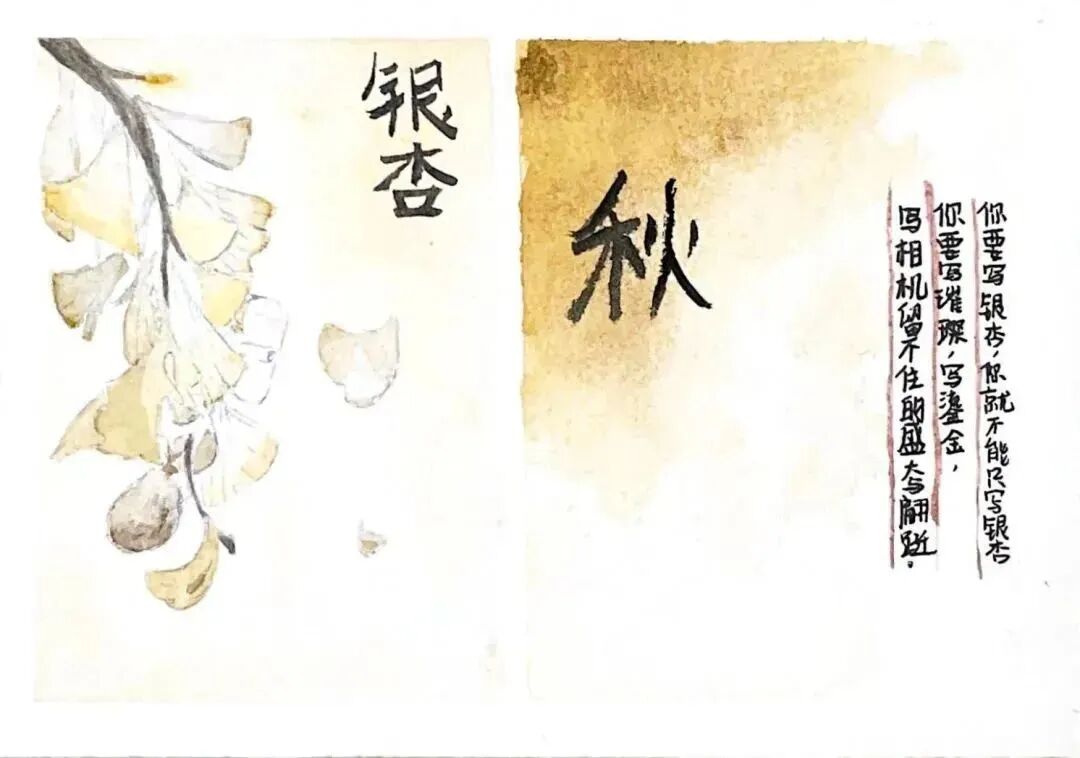 银杏
秋
你要写银杏，你就不能只写银杏
你要写璀璨，写鎏金，
写相机留不住的盛大与翩跹。